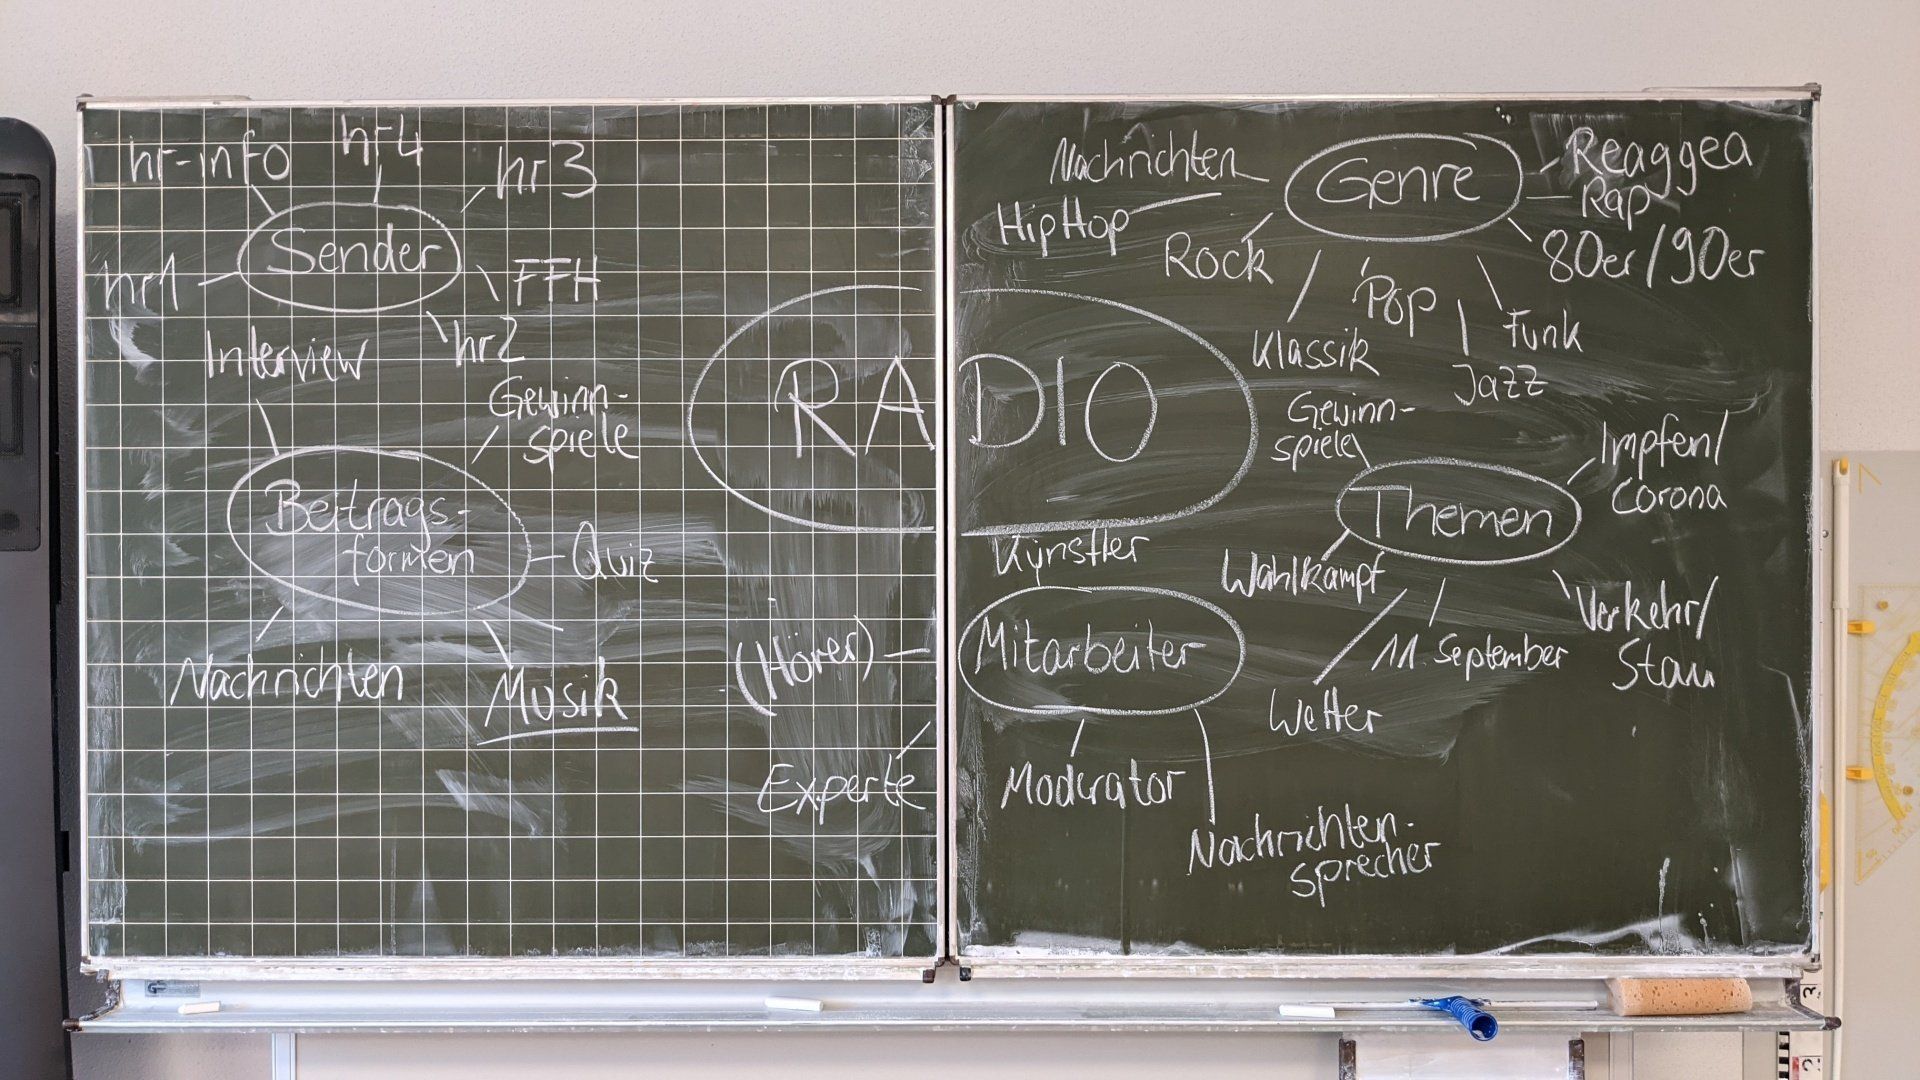 hr-info
hr4
hr3
Sender
hr1
FFH
hr2
Interview
Gewinn-
spiele
Beitrags-
formen
Quiz
Nachrichten
Musik
RADIO
Nachrichten
Genre
Reaggea
Rap
HipHop
Rock
80er/90er
Pop
Klassik
Funk
Jazz
Gewinn-
spiele
Impfen/
Corona
Themen
Wahlkampf
Verkehr/
Stau
11. September
Wetter
Künstler
Mitarbeiter
(Hörer)
Experte
Moderator
Nachrichten-
sprecher